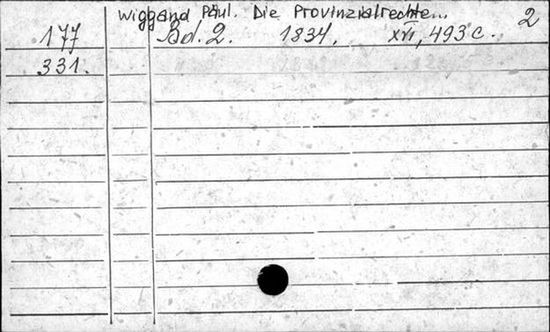 Wiggand Paul. Die Provinzialrechte... 2
177 Bd. 2. 1834. XVI, 493 c.
331.